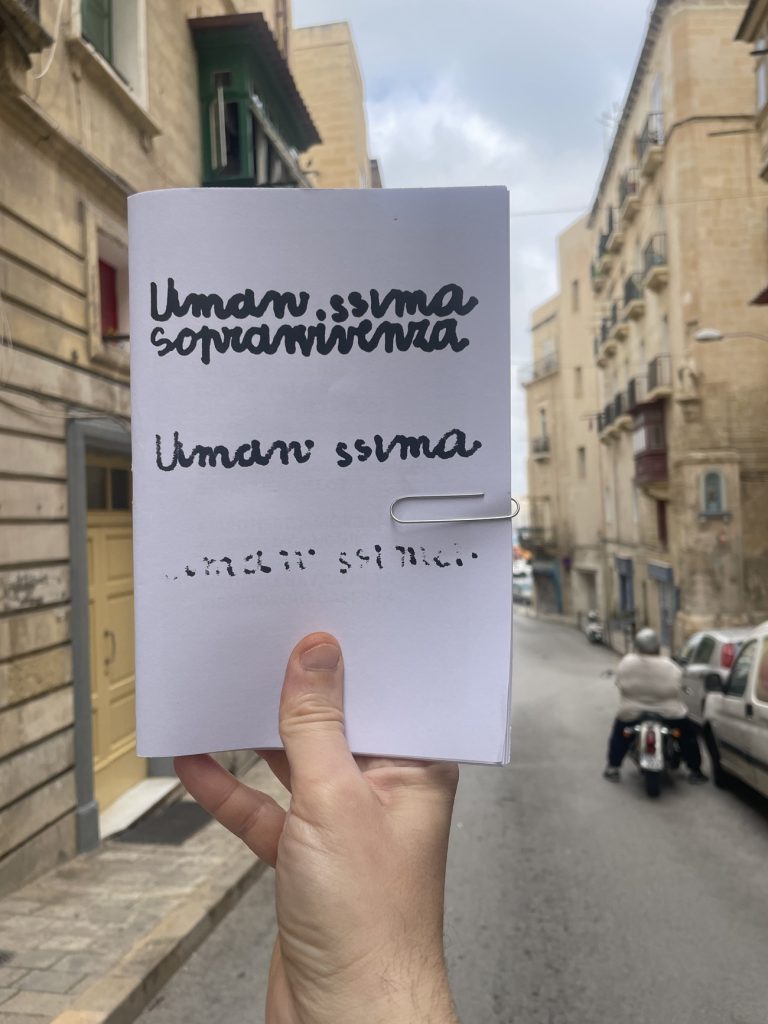 Uman.ssima
sopravvivenza
Uman ssima
uman ssima.